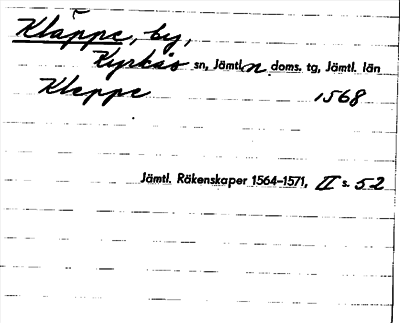 Kläppe, by,
Kyrkås sn, Jämtl. n. doms. tg, Jämtl. län
Kleppe 1568
Jämtl. Räkenskaper 1564–1571, II s. 52